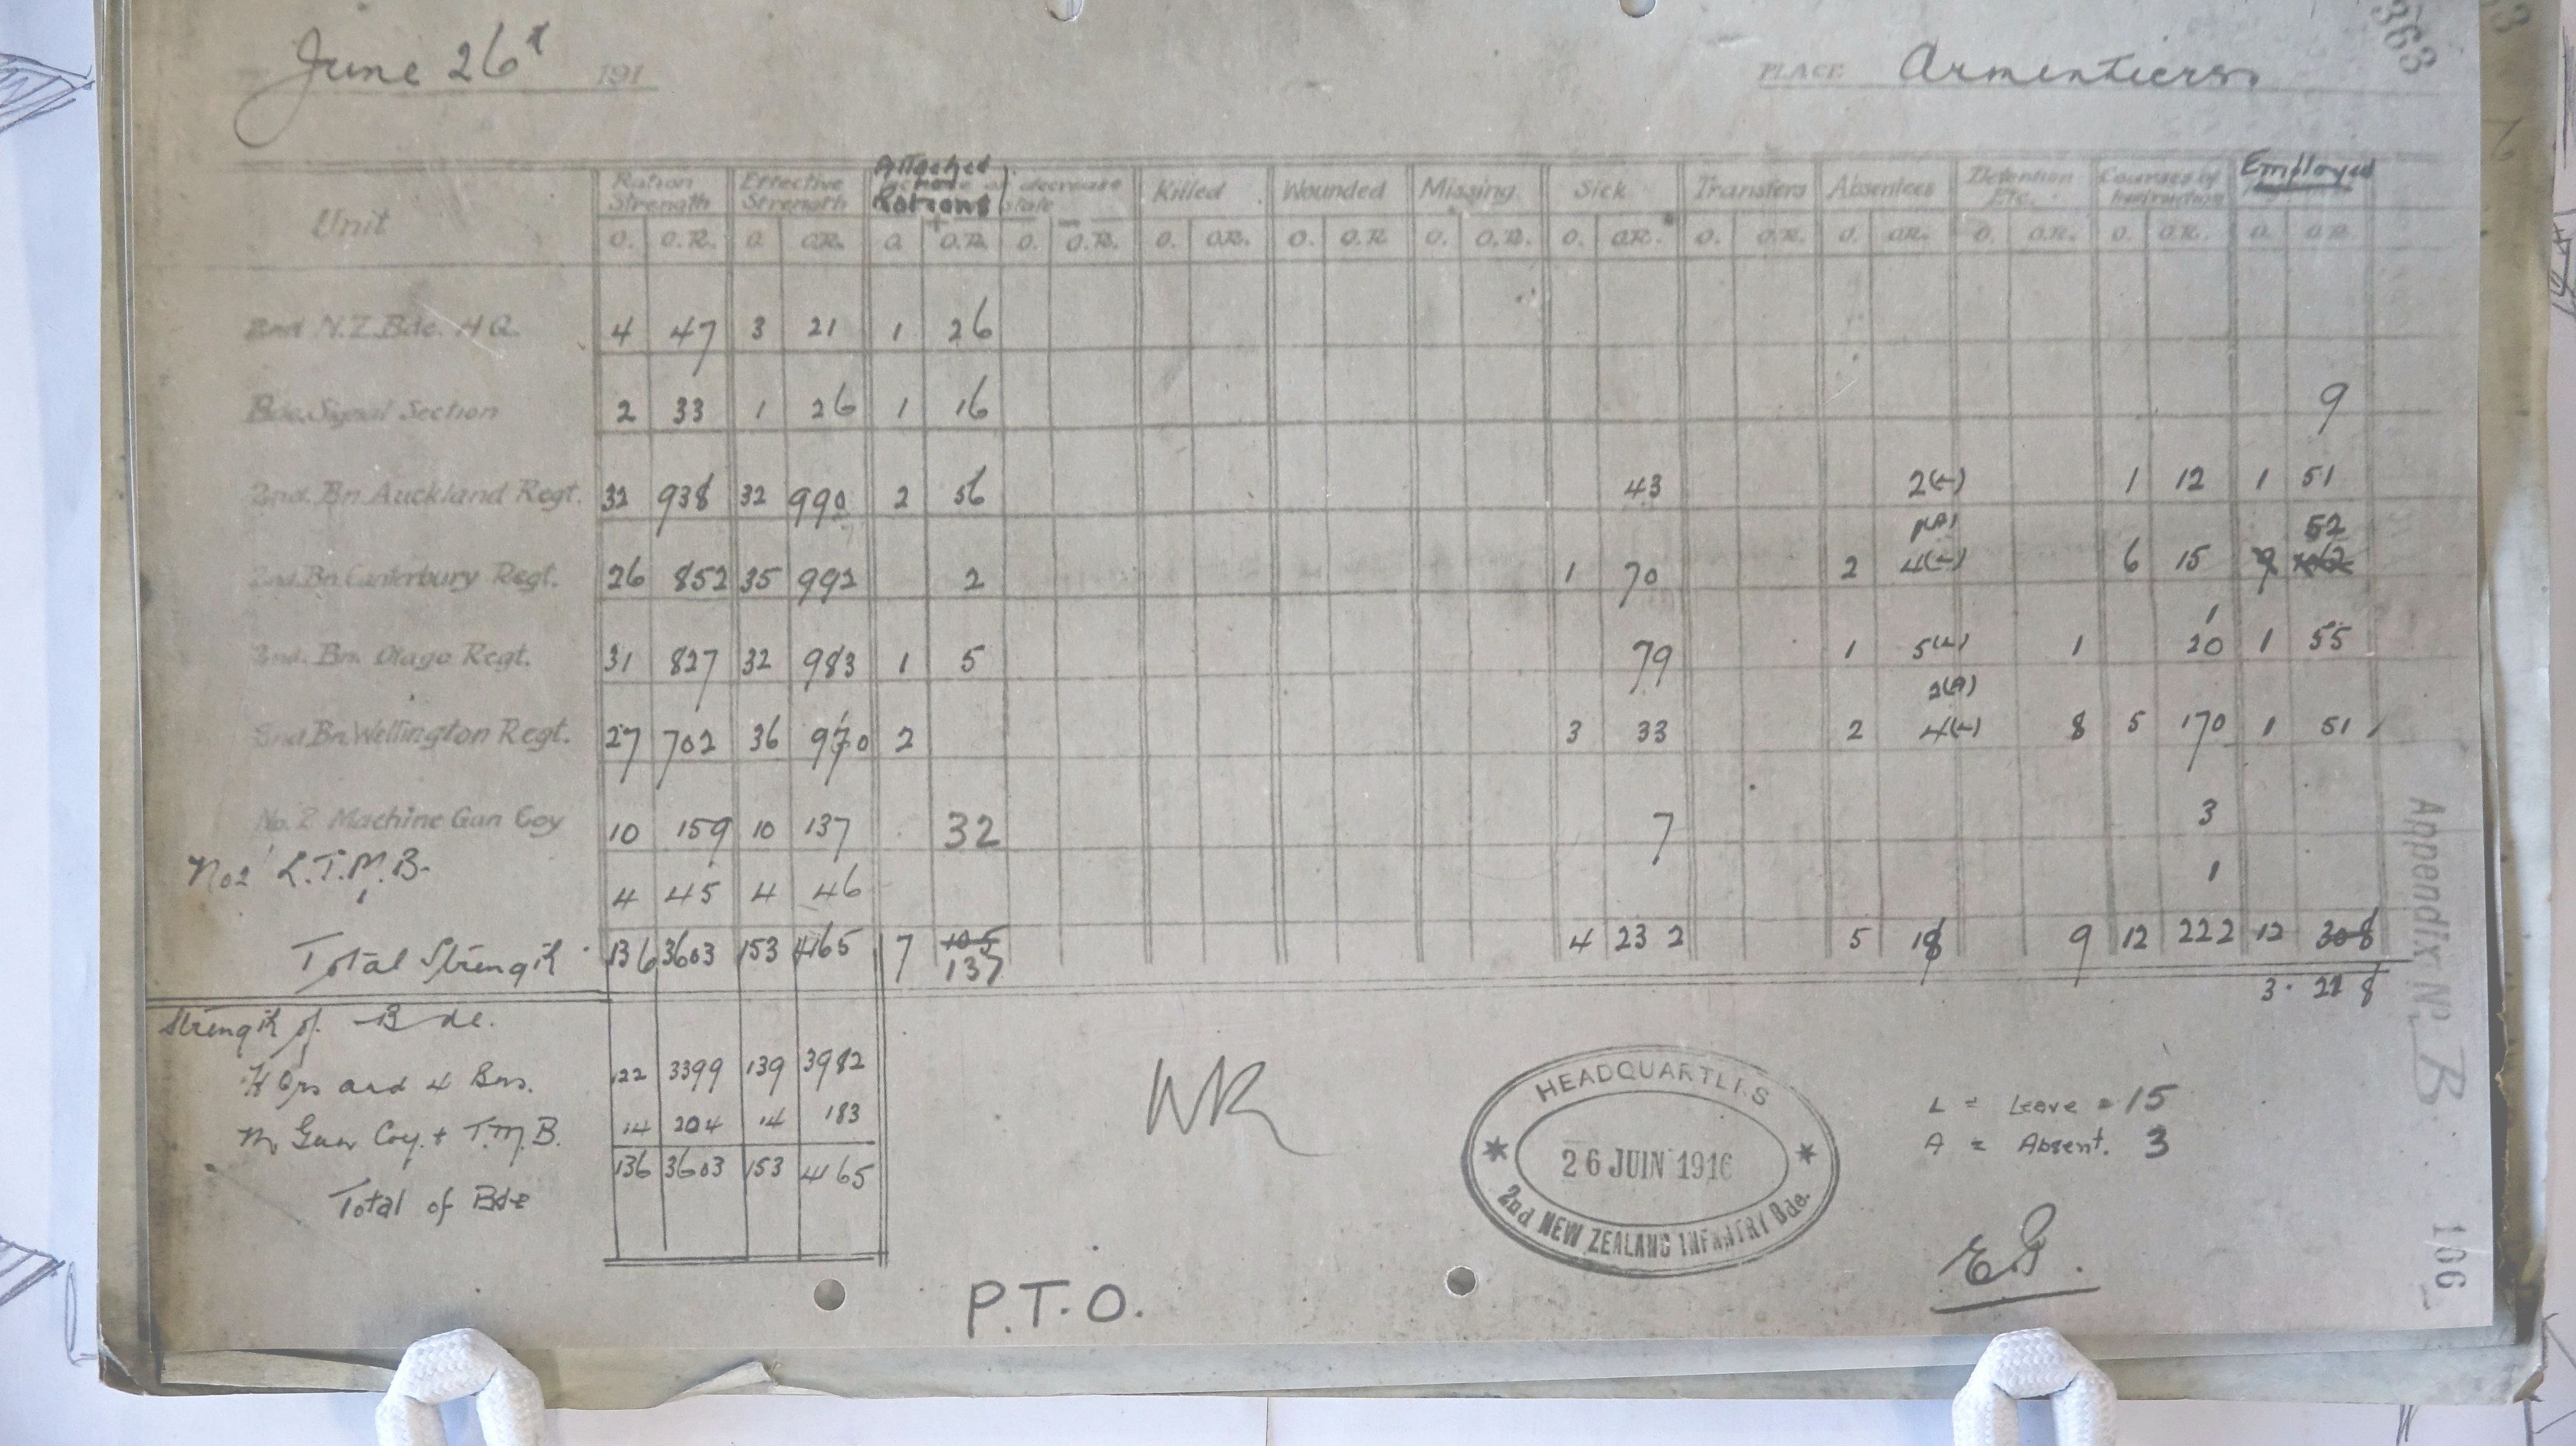 June 26th 191
PLACE Armentiers.
363
Unit Ration Strength Effective Strength Attached Rations decrease state Killed Wounded Missing Sick Transfers Absentees Detention Etc. Courses of Instruction Employed
+ -
O. O.R. O. O.R. O. O.R. O. O.R. O. O.R. O. O.R. O. O.R. O. O.R. O. O.R. O. O.R. O. O.R. O. O.R. O. O.R.
2nd N.Z. Bde. H Q. 4 47 3 21 1 26
Bde. Signal Section 2 33 1 26 1 16 9
2nd. Bn Auckland Regt. 32 938 32 990 2 56 43 2(L) 1 12 1 51
1(A) 52
2nd. Bn. Canterbury Regt. 26 852 35 992 2 1 70 2 4(L) 6 15 9
1
2nd. Bn. Otago Regt. 31 827 32 983 1 5 79 1 5(L) 1 20 1 55
2(A)
2nd. Bn. Wellington Regt. 27 702 36 970 2 3 33 2 4(L) 8 5 170 1 51
No. 2 Machine Gun Coy 10 159 10 137 32 7 3
No 2 L.T.M.B. 4 45 4 46 1
Total Strength 136 3603 153 4165 7 105 4 232 5 18 9 12 222 12 308
137
3. 218
Strength of Bde.
H Qrs and 4 Bns. 122 3399 139 3982
M Gun Coy. + T.M.B. 14 204 14 183
136 3603 153 4165
Total of Bde
WR
HEADQUARTERS
26 JUIN 1916
2nd NEW ZEALAND INFANTRY Bde.
L = Leave = 15
A = Absent. 3
P.T.O.
Appendix No. B.
166